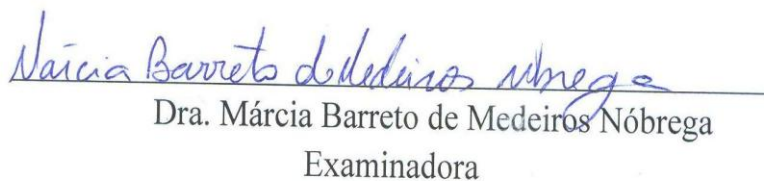 Márcia Barreto de Medeiros Nóbrega
Dra. Márcia Barreto de Medeiros Nóbrega
Examinadora